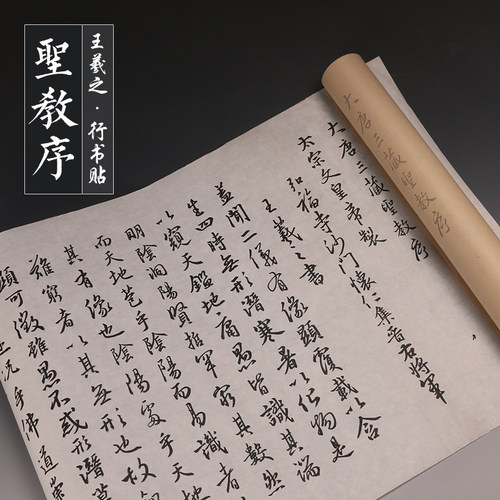 聖教序
王羲之·行书贴
大唐三藏聖教序
大唐三藏聖教序
太宗文皇帝製
弘福寺沙門懷仁集晉右將軍
王羲之書
蓋聞二儀有像顯覆載以含
生四時無形潛寒暑以化物是
以窺天鑑地庸愚皆識其端
明陰洞陽賢哲罕窮其數然
而天地苞乎陰陽而易識者
其有像也陰陽處乎天地
難窮者以其無形也故
顯可徵雖愚不惑形潛莫
況乎佛道崇